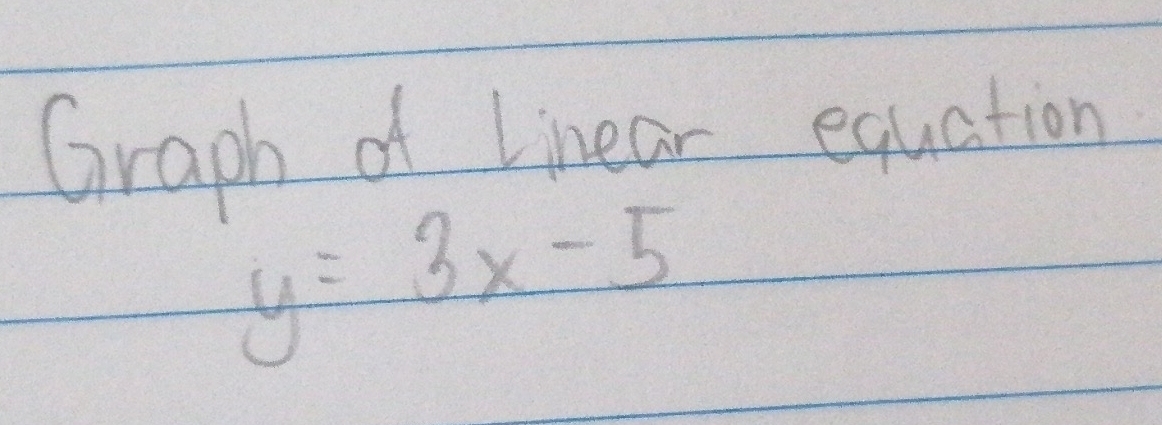 Graph of Linear equation
y = 3x - 5